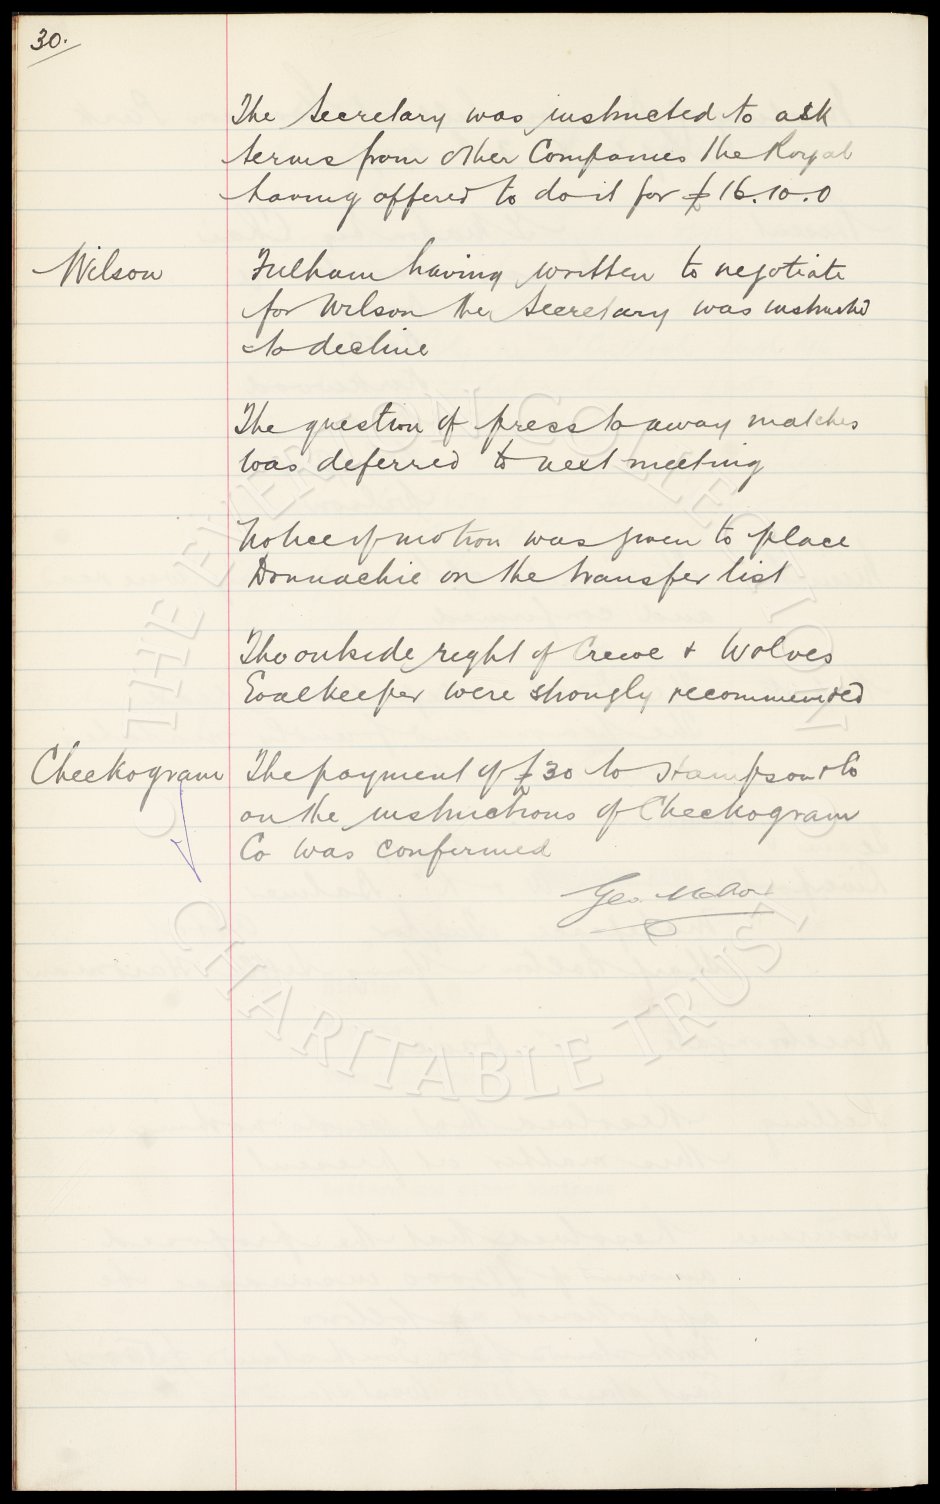 30.
The Secretary was instructed to ask
terms from other Companies the Royal
having offered to do it for £16.10.0
Wilson
Fulham having written to negotiate
for Wilson the Secretary was instructed
to decline
The question of press to away matches
was deferred to next meeting
Notice of motion was given to place
Donnachie on the transfer list
The outside right of Crewe & Wolves
Goalkeeper were strongly recommended
Checkogram
The payment of £30 to Hampson & Co
on the instructions of Checkogram
Co was confirmed
Geo. Mahon
THE EVERTON COLLECTION
CHARITABLE TRUST